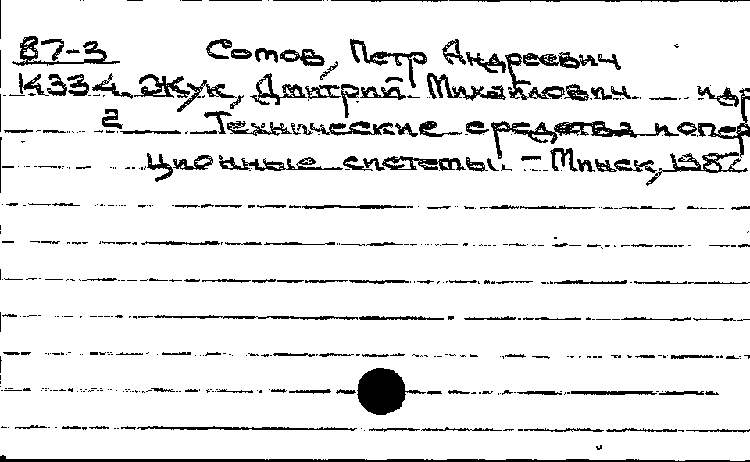 87-3 Сотов, Петр Андреевич
14334 Жук, Дмитрий Михайлович и др
2 Технические средства и опер
ционные системы. - Минск, 1987